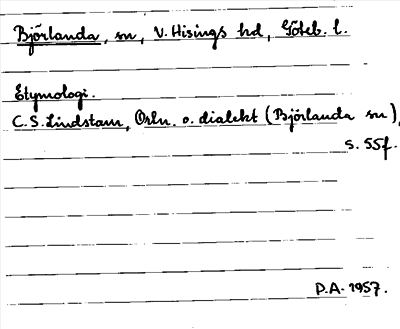 Björlanda, sn, V. Hisings hd, Göteb. l.
Etymologi.
C. S. Lindstam, Ortn. o. dialekt (Björlanda sn),
s. 55f.
P.A. 1957.